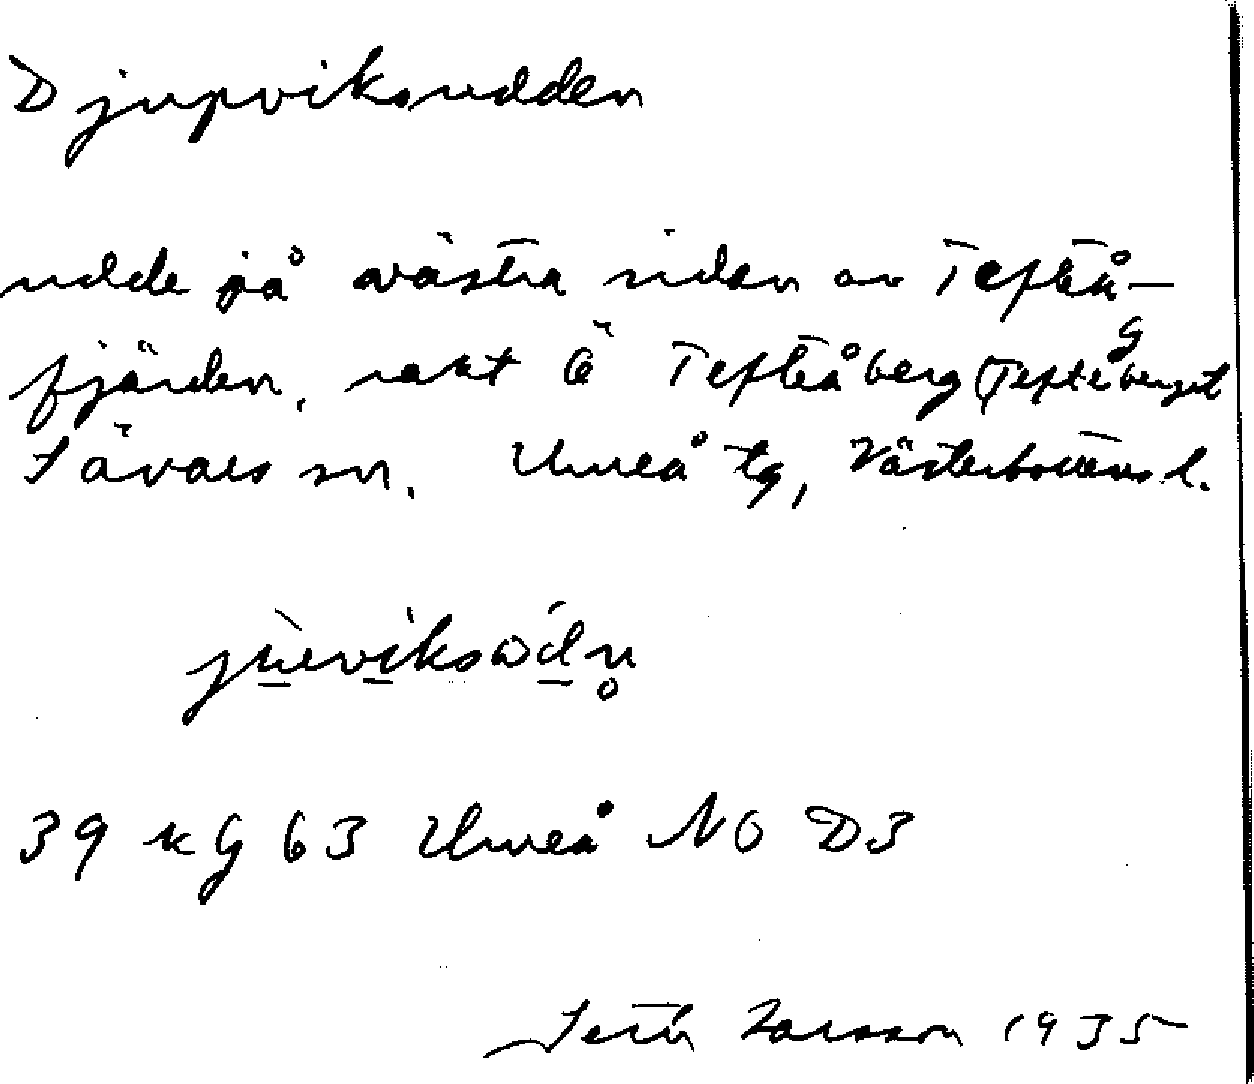 Djupviksudden
udde på västra sidan av Tefteå-
fjärden, rakt Ö Tefteåberg (Tefteåberget G
Sävars sn. Umeå tg, Västerbottens l.
39 KG 63 Umeå NO D3
Seth Larsson 1935